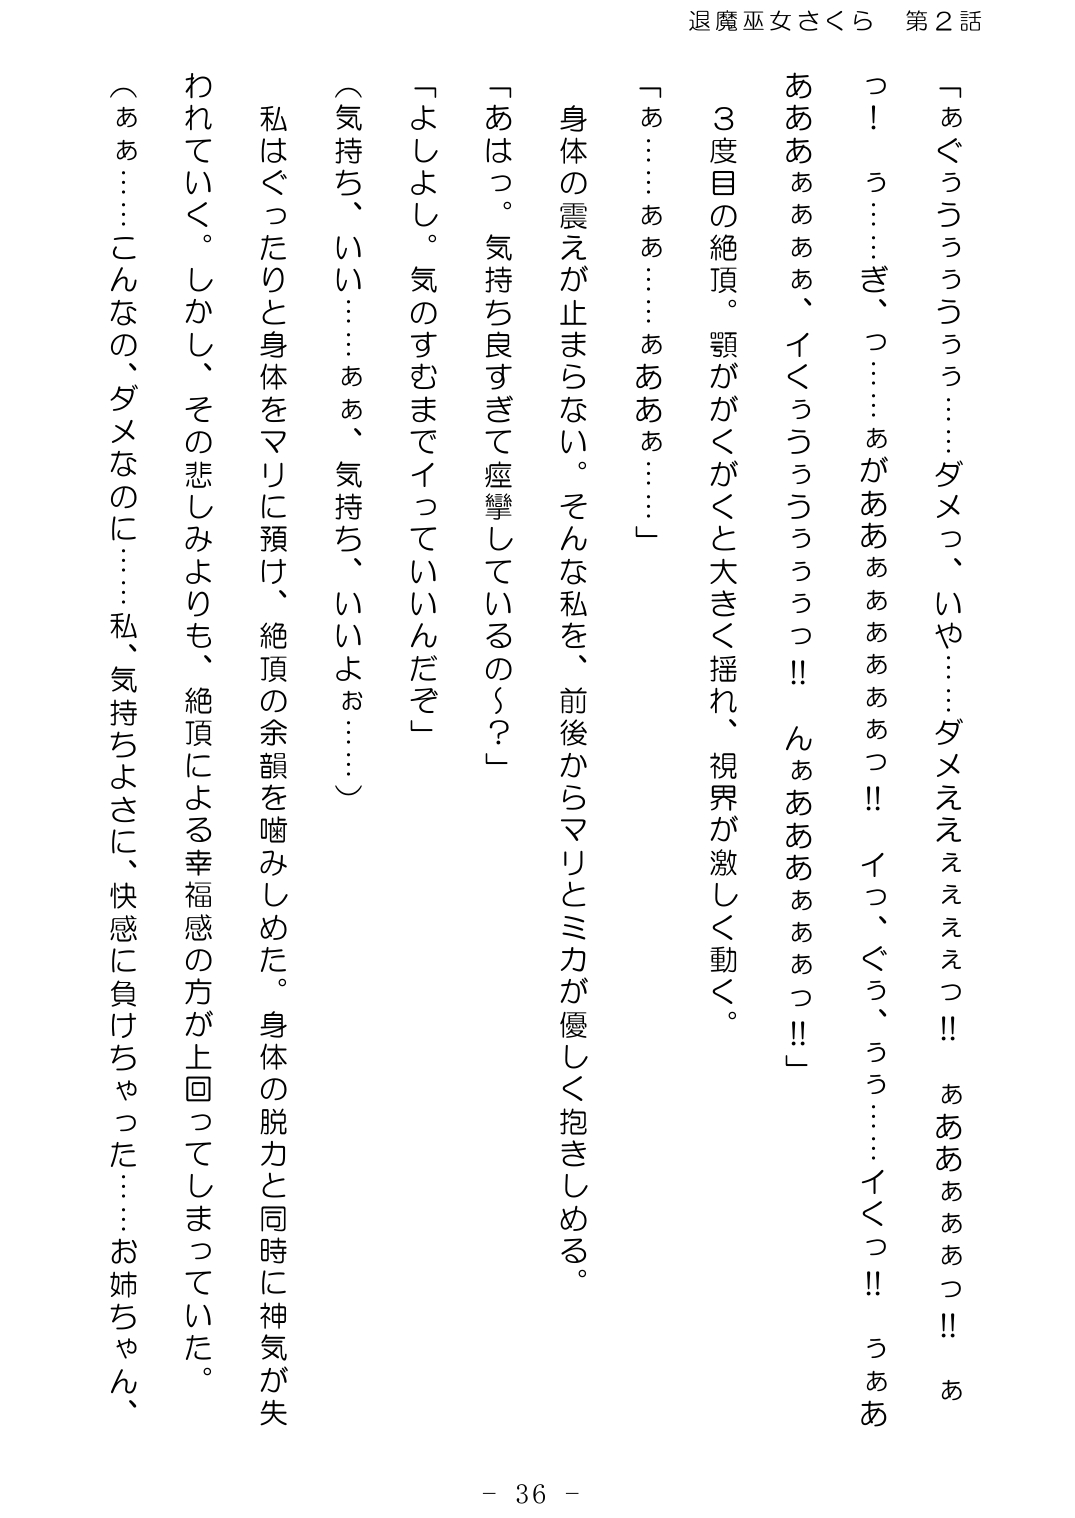 退魔巫女さくら　第２話
「あぐぅうぅぅうぅぅ……ダメっ、いや……ダメええぇぇぇぇっ‼　ぁああぁぁぁっ‼　ぁ
っ！　ぅ……ぎ、っ……ぁがああぁぁぁぁぁぁっ‼　イっ、ぐぅ、ぅぅ……イくっ‼　ぅぁあ
あああぁぁぁぁ、イくぅうぅうぅぅぅっ‼　んぁあああぁぁぁっ‼」
３度目の絶頂。顎ががくがくと大きく揺れ、視界が激しく動く。
「あ……ぁあ……ぁああぁ……」
身体の震えが止まらない。そんな私を、前後からマリとミカが優しく抱きしめる。
「あはっ。気持ち良すぎて痙攣しているの～？」
「よしよし。気のすむまでイっていいんだぞ」
（気持ち、いい……ぁぁ、気持ち、いいよぉ……）
私はぐったりと身体をマリに預け、絶頂の余韻を噛みしめた。身体の脱力と同時に神気が失
われていく。しかし、その悲しみよりも、絶頂による幸福感の方が上回ってしまっていた。
（ぁぁ……こんなの、ダメなのに……私、気持ちよさに、快感に負けちゃった……お姉ちゃん、
- 36 -